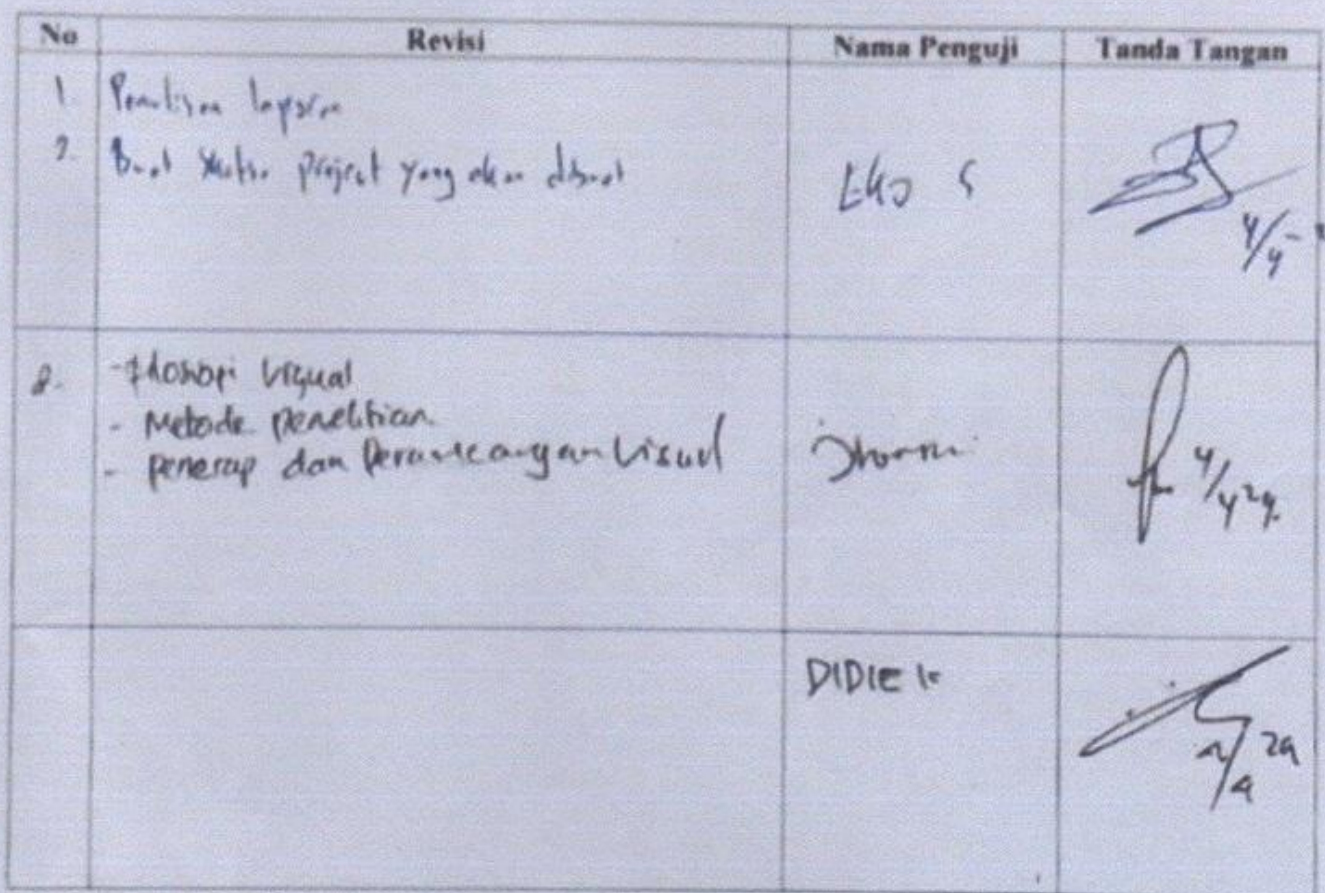 No Revisi Nama Penguji Tanda Tangan
1. Penulisan laporan
2. Buat project yang akan dibuat
EKO S
4/4
2. - filosopi visual
- Metode penelitian
- penerap dan Perancangan Visual
4/4 24
DIDIEK